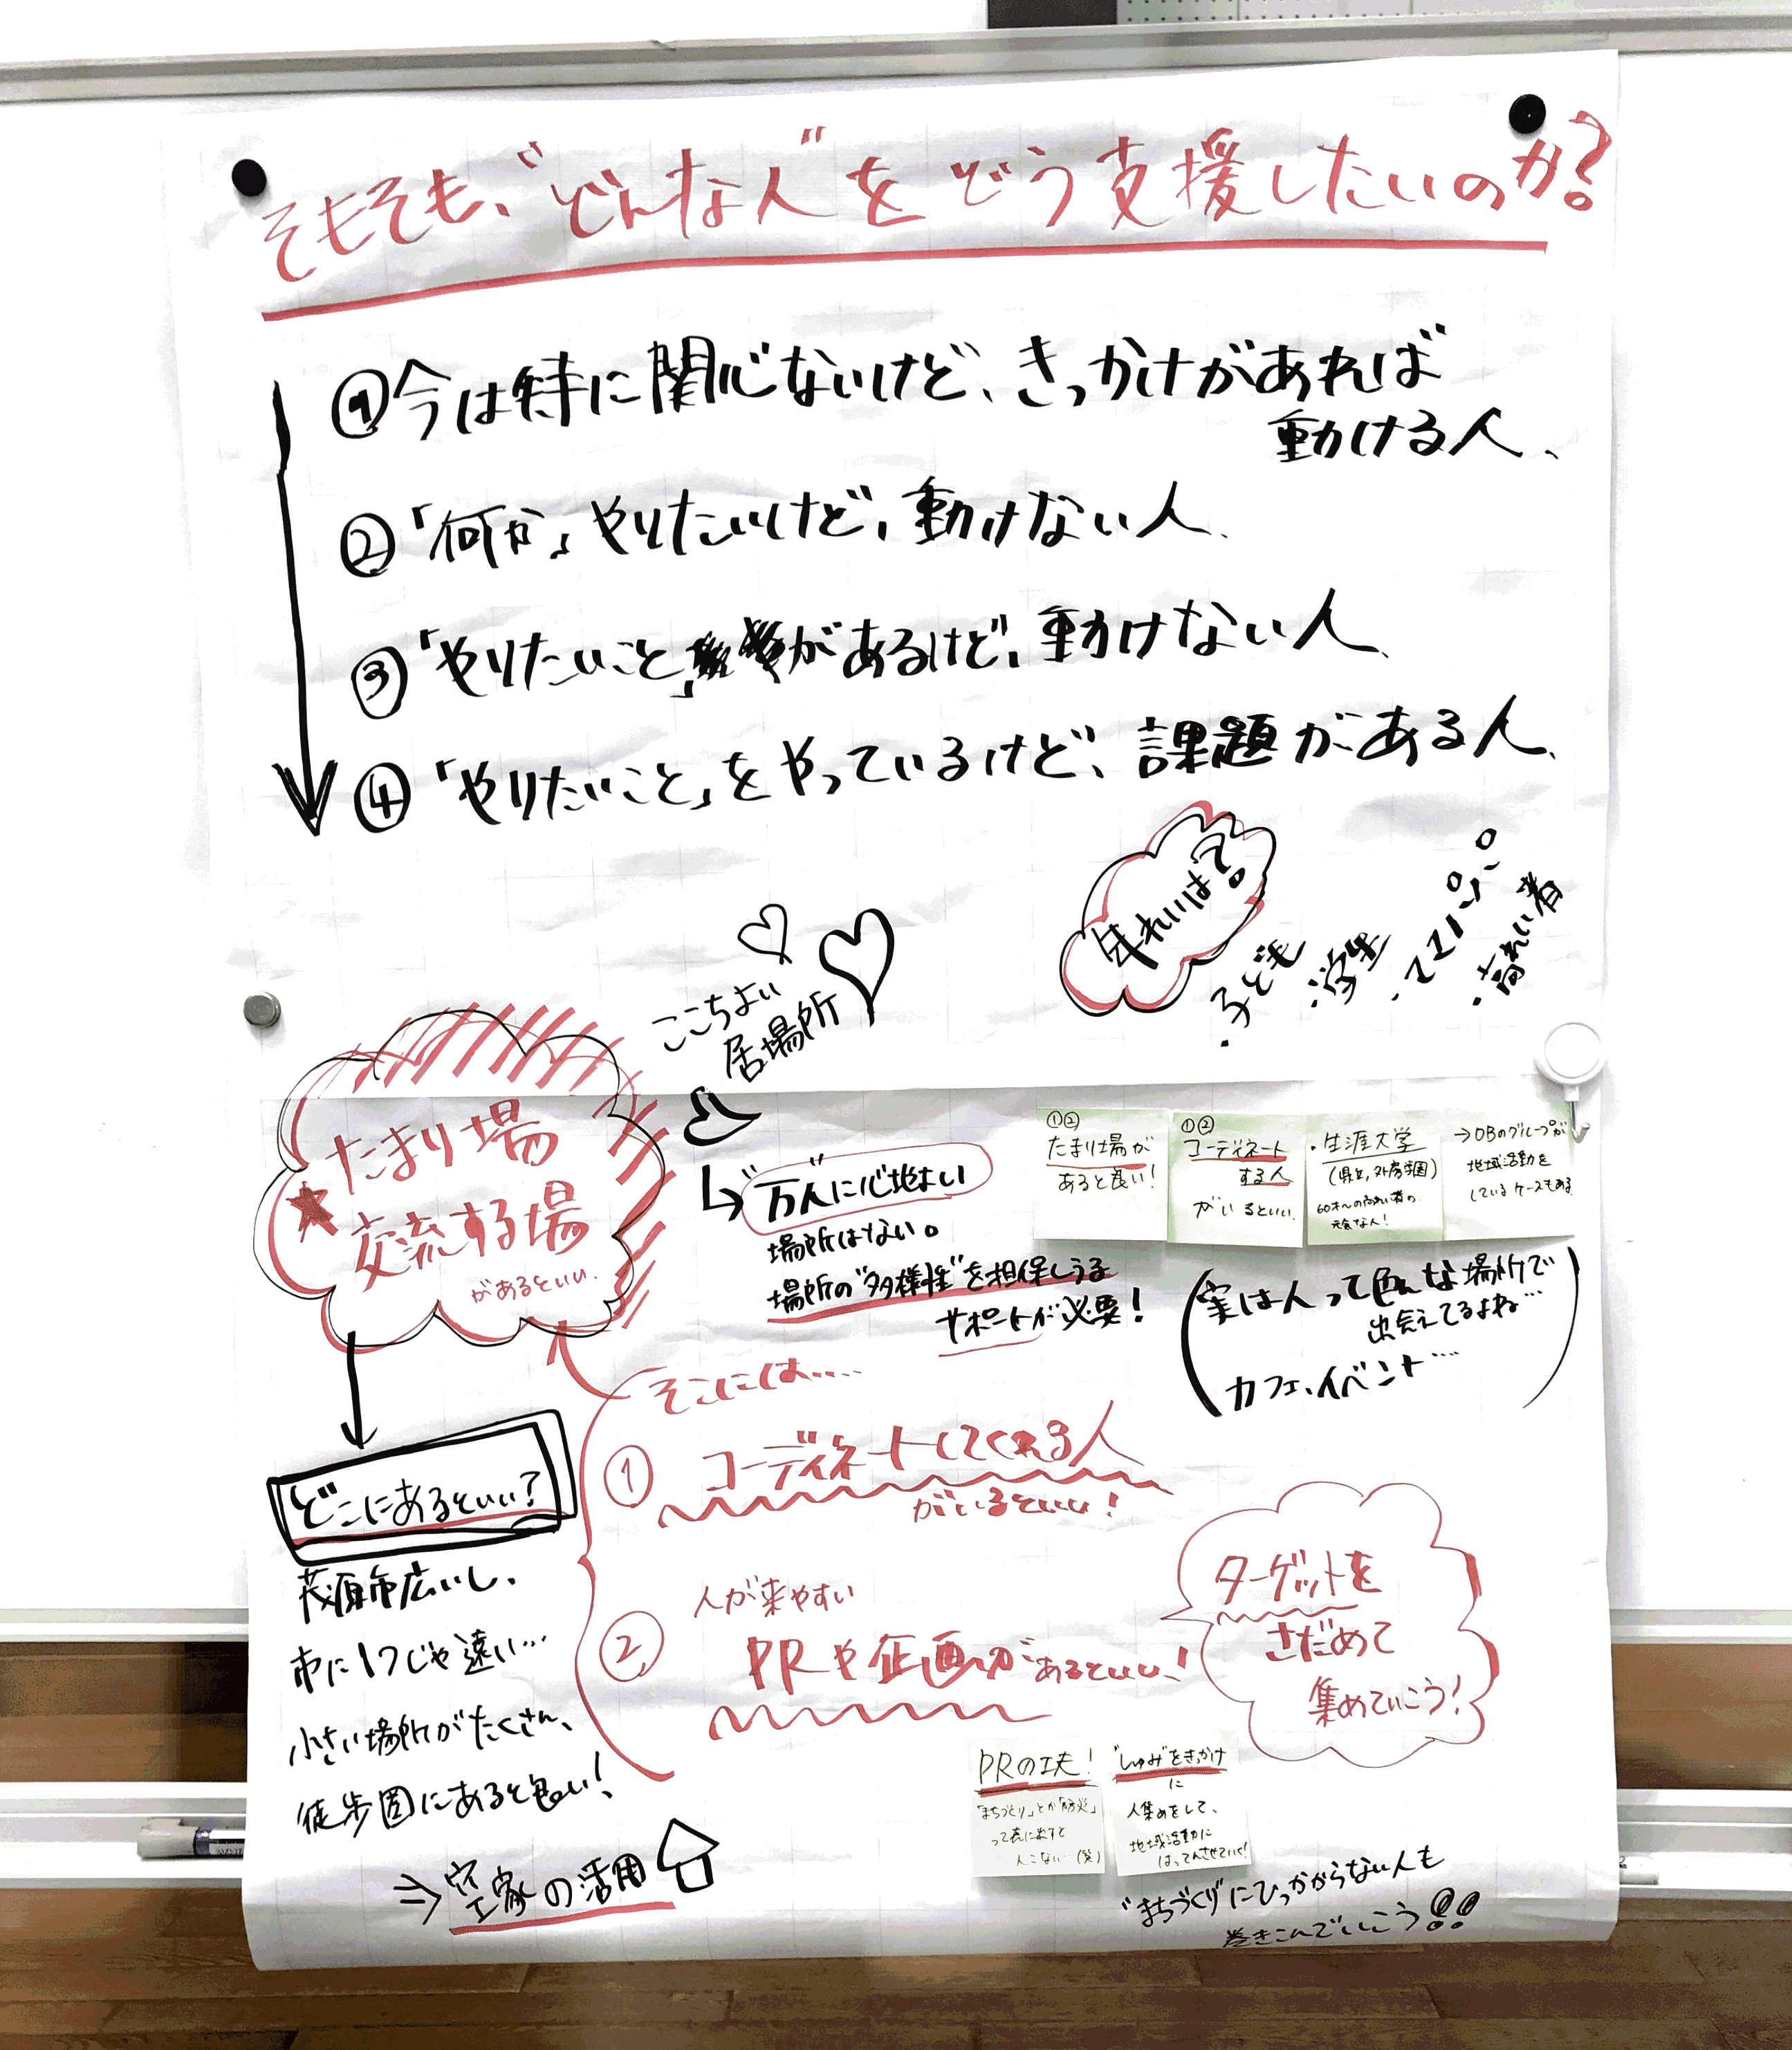 そもそも、“どんな人”をどう支援したいのか？
①今は特に関心ないけど、きっかけがあれば
動ける人、
②「何か」やりたいけど、動けない人、
③「やりたいこと」があるけど、動けない人、
④「やりたいこと」をやっているけど、課題がある人、
年れいは？
・子ども
・学生
・高れい者
ここちよい
居場所
たまり場
★交流する場
があるといい、
“万人”に心地よい
場所はない。
場所の“多様性”を担保しうる
サポートが必要！
①②
たまり場が
あると良い！
①②
コーディネート
する人
がいるといい、
・生涯大学
(県立,外房学園)
60才〜の高れい者の
元気な人！
→OBのグループが
地域活動を
しているケースもある
(実は人って色んな場所で
出会えてるよね…
カフェ、イベント…)
そこには….
①コーディネートしてくれる人
がいるといい！
②人が来やすい
PRや企画があるといい、！
ターゲットを
さだめて
集めていこう！
どこにあるといい？
茂原市広いし、
市に1つじゃ遠い…
小さい場所がたくさん、
徒歩圏にあると良い！
⇒空家の活用
PRの工夫！
「まちづくり」とか「防災」
って表に出すと
人こない…(笑)
“しゅみ”をきっかけ
に
人集めをして、
地域活動に
はってんさせていく！
“まちづくり”にひっかからない人も
巻きこんでいこう!!